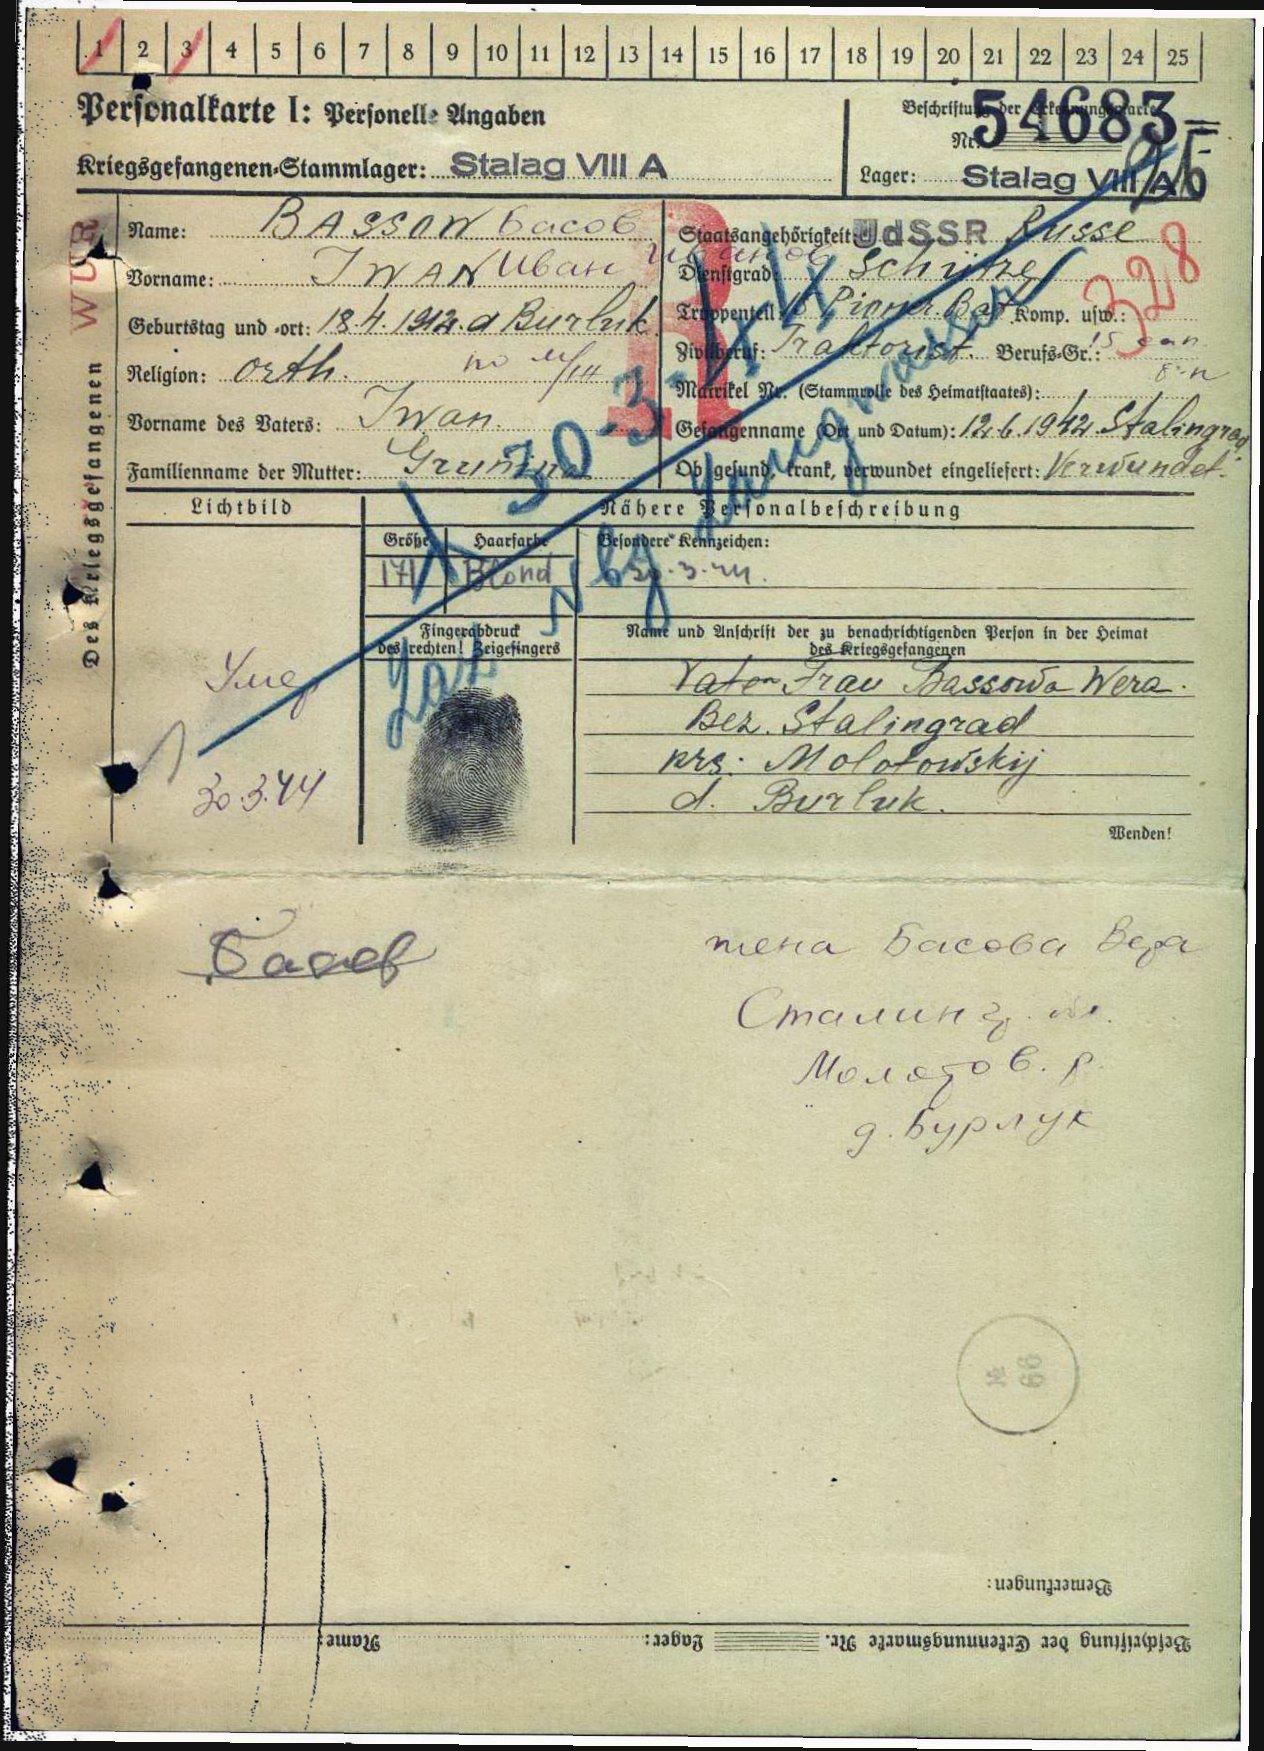 1 2 3 4 5 6 7 8 9 10 11 12 13 14 15 16 17 18 19 20 21 22 23 24 25
Personalkarte I: Personelle Angaben
Beschriftung der Erkennungsmarke
Nr. 54683
Kriegsgefangenen-Stammlager: Stalag VIII A
Lager: Stalag VIII A
Des Kriegsgefangenen
WUR
Name: BASSOW Басов
Vorname: IWAN Иван Иванов
Geburtstag und -ort: 18.4.1912. d Burluk
Religion: orth.
Vorname des Vaters: Iwan.
Familienname der Mutter: Grunina
Staatsangehörigkeit: UdSSR Russe
Dienstgrad: Schütze
Truppenteil: Pionier. Bat. Komp. usw.:
Zivilberuf: Traktorist. Berufs-Gr.:
Matrikel Nr. (Stammrolle des Heimatstaates):
Gefangenname (Ort und Datum): 12.6.1942 Stalingrad
Ob gesund, krank, verwundet eingeliefert: Verwundet.
328
30.3.44
Lichtbild
Nähere Personalbeschreibung
Größe Haarfarbe Besondere Kennzeichen:
171 Blond 30.3.44.
Fingerabdruck
des rechten! Zeigefingers
Name und Anschrift der zu benachrichtigenden Person in der Heimat
des Kriegsgefangenen
Frau Bassowa Wera.
Bez. Stalingrad
krs: Molotowskij
d. Burluk.
Умер
30.3.44
Wenden!
Басов
жена Басова Вера
Сталингр. обл.
Молотов. р.
д. Бурлук
№ 66
Bemerkungen:
Beschriftung der Erkennungsmarke Nr. Lager: Name: